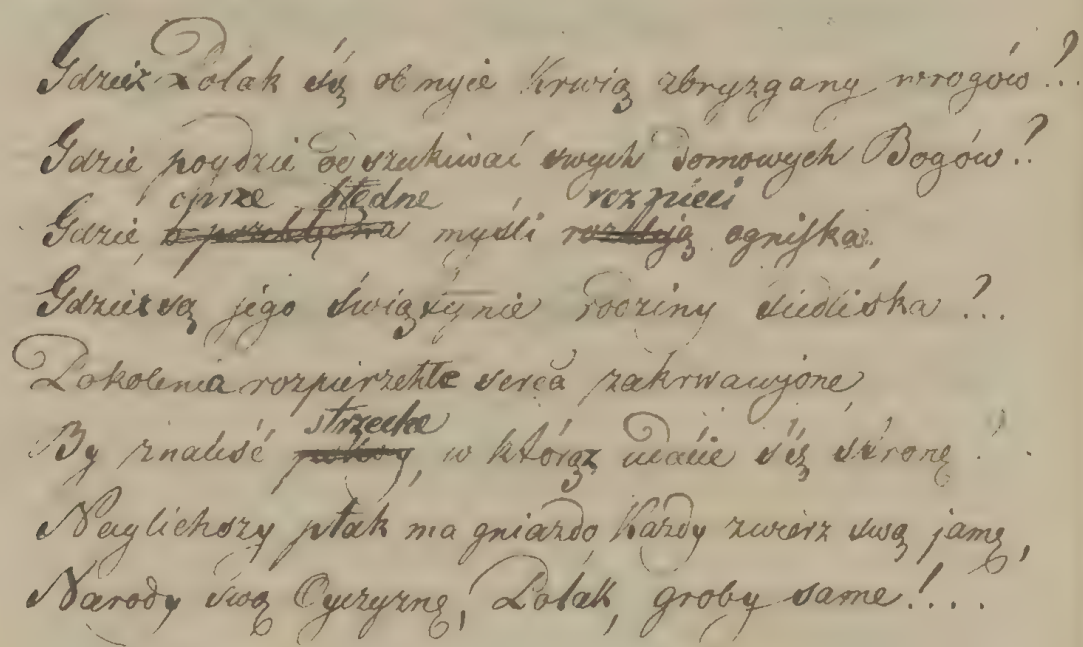 Gdzież Polak się obmyie krwią zbryzgany wrogów?..
Gdzie poydzie odszukiwać swych domowych Bogów?..
ciprze błędne rozpieci
Gdzie myśli ogniska,
Gdzież są jego świątynie rodziny siedliska?...
Pokolenia rozpierzchłe serca zakrwawione,
strzechę
By znaleść , w którąż udacie się stronę!..
Naylichszy ptak ma gniazdo, każdy zwierz swą jamę,
Narody swą Oyczyznę, Polak, groby same!....